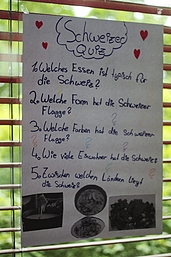 Schweizer
Quiz
1. Welches Essen ist typisch für
die Schweiz?
2. Welche Form hat die Schweizer
Flagge?
3. Welche Farben hat die Schweizer
Flagge?
4. Wie viele Einwohner hat die Schweiz?
5. Zwischen welchen Ländern liegt
die Schweiz?